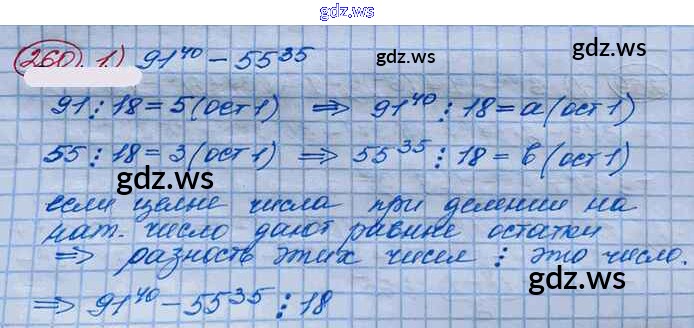 gdz.ws
260. 1) 91⁴⁰ − 55³⁵
gdz.ws
gdz.ws
91 : 18 = 5 (ост 1) ⇒ 91⁴⁰ : 18 = a (ост 1)
55 : 18 = 3 (ост 1) ⇒ 55³⁵ : 18 = b (ост 1)
gdz.ws
если целые числа при делении на
нат. число дают равные остатки
⇒ разность этих чисел ⋮ это число.
gdz.ws
⇒ 91⁴⁰ − 55³⁵ ⋮ 18